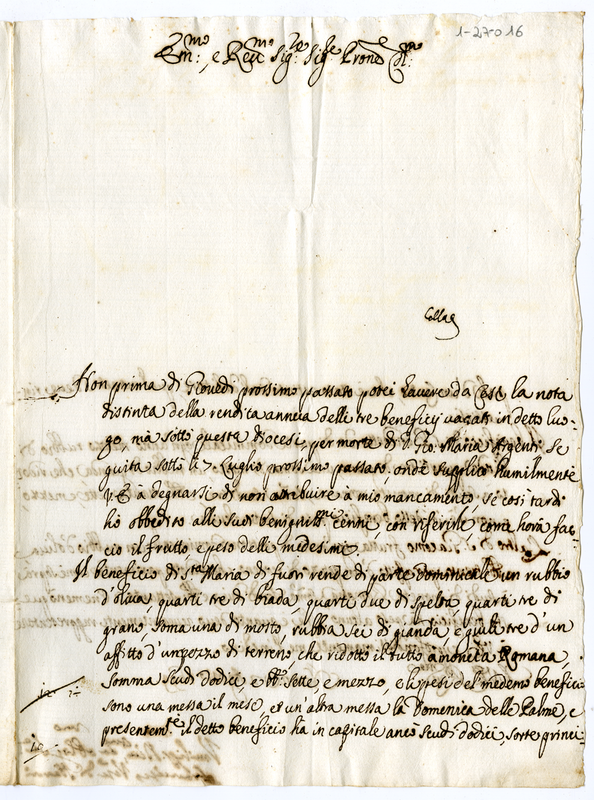 1-27-016
Em.mo, e Rev.mo Sig.re Sig.re Prone Col.mo
Colla
Non prima di Giovedi prossimo passato potei havere da Cesi la nota
distinta della rendita annua delli tre beneficij vacati in detto luo-
go, mà sotto questa Diocesi, per morte di D. Gio. Maria Argenti se
guita sotto li 7. Luglio prossimo passato, onde supplico humilmente
V.E. à degnarsi di non attribuire à mio mancamento se così tardi
hò obbedito alli suoi benigniss.mi cenni, con riferirle, come hora fac-
cio il frutto, e peso delli medesimi.
Il beneficio di S.ta Maria di fuori rende di parte Dominicale un rubbio
d'oliva, quarti tre di biada, quarti due di spelta, quarti tre di
grano, soma una di mosto, rubbia sei di gianda, e giulij tre d'un
affitto d'un pezzo di terreno, che ridotto il tutto à moneta Romana,
somma scudi dodici, e bb. sette, e mezzo, e li pesi del medemo beneficio
12. 7½
sono una messa il mese, et un'altra messa la Domenica delle Palme, e
presentem.te il detto beneficio hà in capitale anco scudi dodici, sorte princi-
12